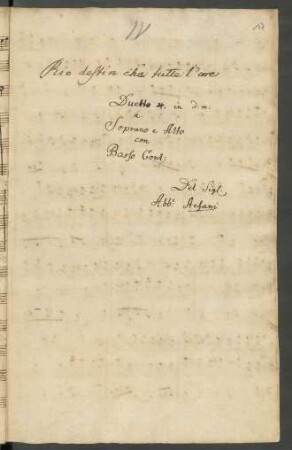 IV
Rio destin cha tutte l'ore
Duetto 4. in d.
a
Soprano e Alto
con
Basso Cont:
Del Sigl.
Abb: